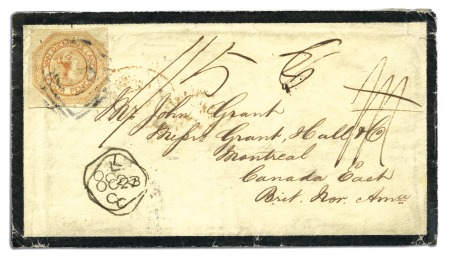 1/5
Mr. John Grant
Messrs Grant, Hall & Co
Montreal
Canada East
Brit. Nor. Amca